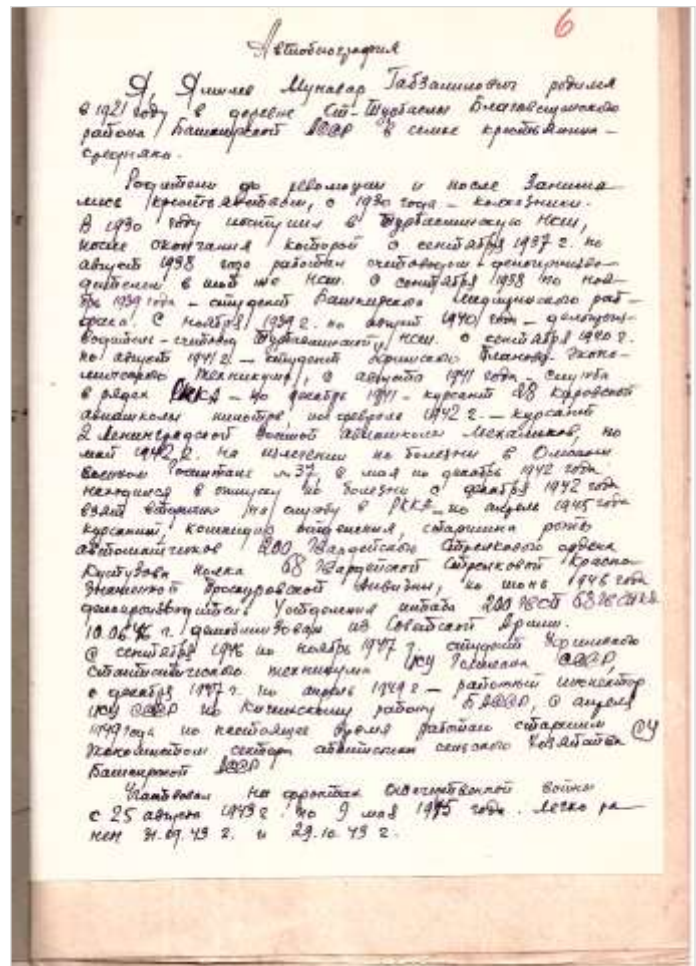 6
Автобиография
Я, Ямилев Мунавар Габзалилович родился
в 1921 году в деревне Ст-Турбаслы Благовещенского
района Башкирской АССР в семье крестьянина-
середняка.
Родители до революции и после занима-
лись крестьянством, с 1930 года - колхозники.
В 1930 году поступил в Турбаслинскую НСШ,
после окончания которой с сентября 1937 г. по
август 1938 года работал счетоводом - делопроизво-
дителем в той же НСШ. С сентября 1938 по ноя-
брь 1939 года - студент Башкирского медицинского раб-
фака. С ноября 1939 г. по август 1940 года - делопроиз-
водитель-счетовод Турбаслинской НСШ. С сентября 1940 г.
по август 1941 г. - студент планово-эконо-
мического техникума, с августа 1941 года - служба
в рядах РККА - по декабрь 1941 - курсант 28
авиашколы пилотов, по февраль 1942 г. - курсант
2 Ленинградской военной авиашколы механиков, по
май 1942 г. на излечении по болезни в Омском
военном госпитале № 37, с мая по декабрь 1942 года
находился в отпуску по болезни с декабря 1942 года
взят вторично на службу в РККА - по апрель 1945 года
курсант, командир отделения, старшина роты
автоматчиков 200 Гвардейского Стрелкового ордена
Кутузова полка 68 Гвардейской Стрелковой Красно-
знаменной Проскуровской дивизии, по июнь 1946 года
делопроизводитель отделения штаба 200 68
10.06.46 г. демобилизован из Советской Армии.
С сентября 1946 по ноябрь 1947 г. студент Уфимского
статистического техникума ЦСУ Госплана СССР,
с декабря 1947 г. по апрель 1949 г. - районный инспектор
ЦСУ СССР по району БАССР, с апреля
1949 года по настоящее время работаю старшим
экономистом сектора статистики сельского хозяйства СУ
Башкирской АССР
Участвовал на фронтах отечественной войны
с 25 августа 1943 г. по 9 мая 1945 года. Легко ра-
нен 09.43 г. и 29.10.43 г.